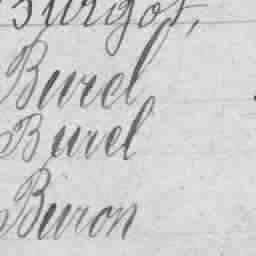 Burgot,
Burel
Burel
Buron